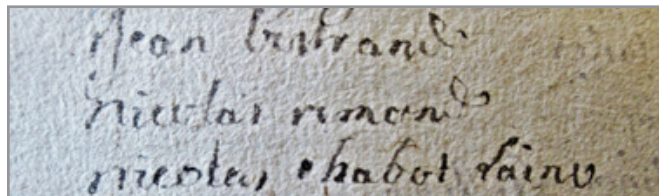 Jean bertrand
nicolas remond
nicolas chabot laine